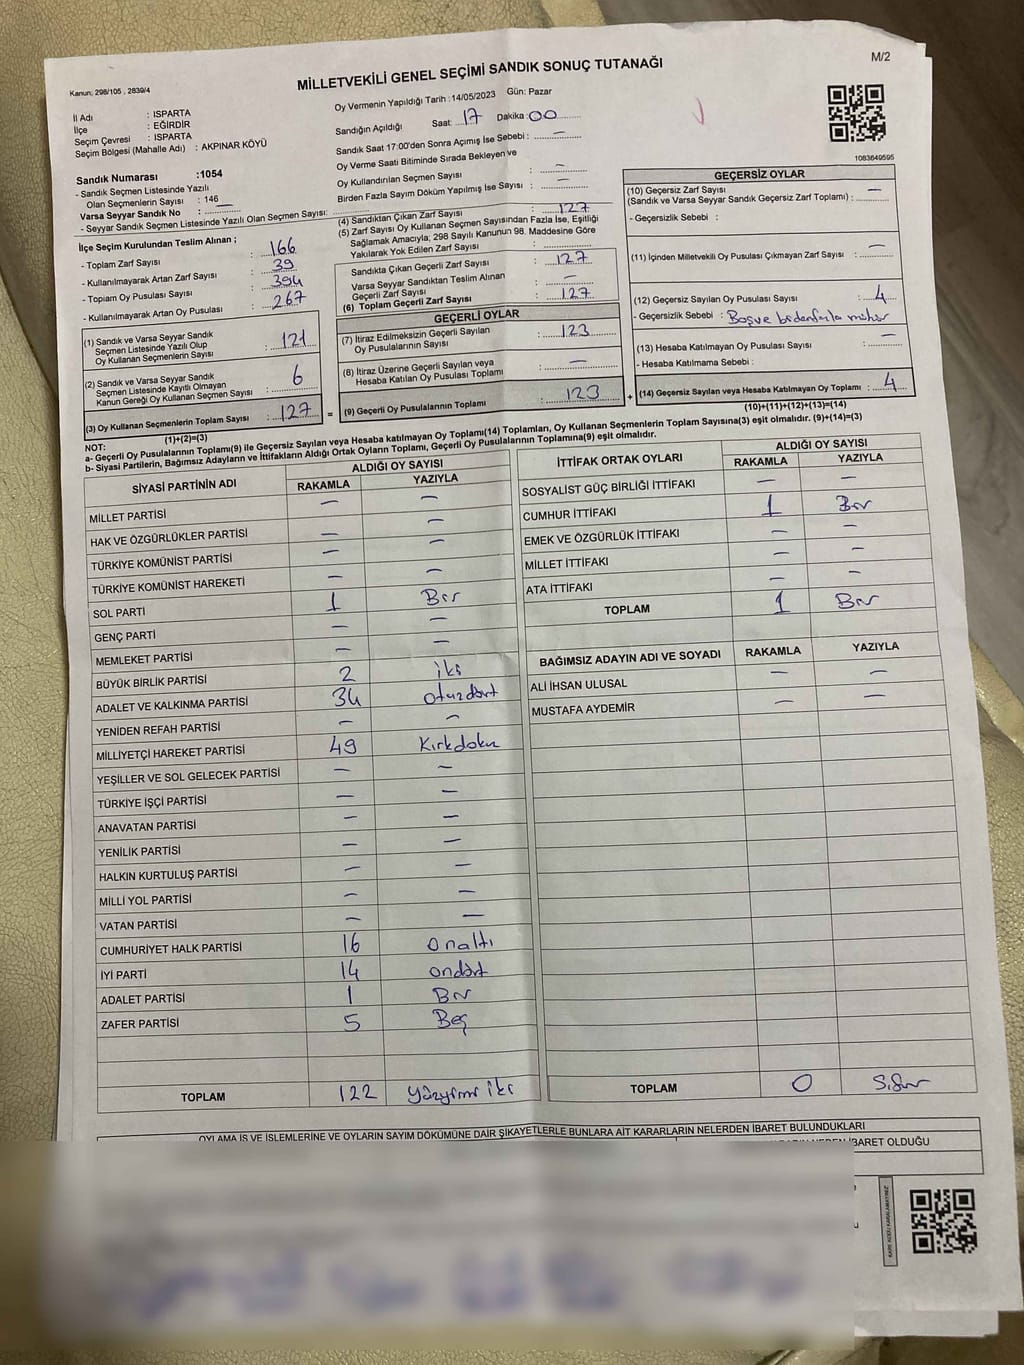 M/2
Kanun; 298/105 , 2839/4
MİLLETVEKİLİ GENEL SEÇİMİ SANDIK SONUÇ TUTANAĞI
İl Adı : ISPARTA
İlçe : EĞİRDİR
Seçim Çevresi : ISPARTA
Seçim Bölgesi (Mahalle Adı) : AKPINAR KÖYÜ
Sandık Numarası :1054
- Sandık Seçmen Listesinde Yazılı
Olan Seçmenlerin Sayısı : 146
Varsa Seyyar Sandık No : —
- Seyyar Sandık Seçmen Listesinde Yazılı Olan Seçmen Sayısı:
İlçe Seçim Kurulundan Teslim Alınan ;
- Toplam Zarf Sayısı : 166
- Kullanılmayarak Artan Zarf Sayısı : 39
- Toplam Oy Pusulası Sayısı : 394
- Kullanılmayarak Artan Oy Pusulası : 267
(1) Sandık ve Varsa Seyyar Sandık
Seçmen Listesinde Yazılı Olup
Oy Kullanan Seçmenlerin Sayısı : 121
(2) Sandık ve Varsa Seyyar Sandık
Seçmen Listesinde Kayıtlı Olmayan
Kanun Gereği Oy Kullanan Seçmen Sayısı : 6
(3) Oy Kullanan Seçmenlerin Toplam Sayısı : 127 =
(1)+(2)=(3)
Oy Vermenin Yapıldığı Tarih : 14/05/2023 Gün: Pazar
Sandığın Açıldığı Saat: 17 Dakika : 00
Sandık Saat 17:00'den Sonra Açımış İse Sebebi : —
Oy Verme Saati Bitiminde Sırada Bekleyen ve
Oy Kullandırılan Seçmen Sayısı : —
Birden Fazla Sayım Döküm Yapılmış İse Sayısı : —
(4) Sandıktan Çıkan Zarf Sayısı : 127
(5) Zarf Sayısı Oy Kullanan Seçmen Sayısından Fazla İse, Eşitliği
Sağlamak Amacıyla; 298 Sayılı Kanunun 98. Maddesine Göre
Yakılarak Yok Edilen Zarf Sayısı : —
Sandıkta Çıkan Geçerli Zarf Sayısı : 127
Varsa Seyyar Sandıktan Teslim Alınan
Geçerli Zarf Sayısı : —
(6) Toplam Geçerli Zarf Sayısı : 127
GEÇERLİ OYLAR
(7) İtiraz Edilmeksizin Geçerli Sayılan
Oy Pusulalarının Sayısı : 123
(8) İtiraz Üzerine Geçerli Sayılan veya
Hesaba Katılan Oy Pusulası Toplamı : —
(9) Geçerli Oy Pusulalarının Toplamı : 123 +
1083649595
GEÇERSİZ OYLAR
(10) Geçersiz Zarf Sayısı
(Sandık ve Varsa Seyyar Sandık Geçersiz Zarf Toplamı) : —
- Geçersizlik Sebebi :
(11) İçinden Milletvekili Oy Pusulası Çıkmayan Zarf Sayısı : —
(12) Geçersiz Sayılan Oy Pusulası Sayısı : 4
- Geçersizlik Sebebi : Boş ve birden fazla mühür
(13) Hesaba Katılmayan Oy Pusulası Sayısı : —
- Hesaba Katılmama Sebebi :
(14) Geçersiz Sayılan veya Hesaba Katılmayan Oy Toplamı : 4
(10)+(11)+(12)+(13)=(14)
NOT:
a- Geçerli Oy Pusulalarının Toplamı(9) ile Geçersiz Sayılan veya Hesaba katılmayan Oy Toplamı(14) Toplamları, Oy Kullanan Seçmenlerin Toplam Sayısına(3) eşit olmalıdır. (9)+(14)=(3)
b- Siyasi Partilerin, Bağımsız Adayların ve İttifakların Aldığı Ortak Oyların Toplamı, Geçerli Oy Pusulalarının Toplamına(9) eşit olmalıdır.
SİYASİ PARTİNİN ADI ALDIĞI OY SAYISI
RAKAMLA YAZIYLA
MİLLET PARTİSİ — —
HAK VE ÖZGÜRLÜKLER PARTİSİ — —
TÜRKİYE KOMÜNİST PARTİSİ — —
TÜRKİYE KOMÜNİST HAREKETİ — —
SOL PARTİ 1 Bir
GENÇ PARTİ — —
MEMLEKET PARTİSİ — —
BÜYÜK BİRLİK PARTİSİ 2 iki
ADALET VE KALKINMA PARTİSİ 34 otuzdört
YENİDEN REFAH PARTİSİ — —
MİLLİYETÇİ HAREKET PARTİSİ 49 Kırkdokuz
YEŞİLLER VE SOL GELECEK PARTİSİ — —
TÜRKİYE İŞÇİ PARTİSİ — —
ANAVATAN PARTİSİ — —
YENİLİK PARTİSİ — —
HALKIN KURTULUŞ PARTİSİ — —
MİLLİ YOL PARTİSİ — —
VATAN PARTİSİ — —
CUMHURİYET HALK PARTİSİ 16 onaltı
İYİ PARTİ 14 ondört
ADALET PARTİSİ 1 Bir
ZAFER PARTİSİ 5 Beş
TOPLAM 122 yüzyirmi iki
İTTİFAK ORTAK OYLARI ALDIĞI OY SAYISI
RAKAMLA YAZIYLA
SOSYALİST GÜÇ BİRLİĞİ İTTİFAKI — —
CUMHUR İTTİFAKI 1 Bir
EMEK VE ÖZGÜRLÜK İTTİFAKI — —
MİLLET İTTİFAKI — —
ATA İTTİFAKI — —
TOPLAM 1 Bir
BAĞIMSIZ ADAYIN ADI VE SOYADI RAKAMLA YAZIYLA
ALİ İHSAN ULUSAL — —
MUSTAFA AYDEMİR — —
TOPLAM 0 Sıfır
OYLAMA İŞ VE İŞLEMLERİNE VE OYLARIN SAYIM DÖKÜMÜNE DAİR ŞİKAYETLERLE BUNLARA AİT KARARLARIN NELERDEN İBARET BULUNDUKLARI
NEDEN İBARET OLDUĞU
KARE KODU KARALAMAYINIZ